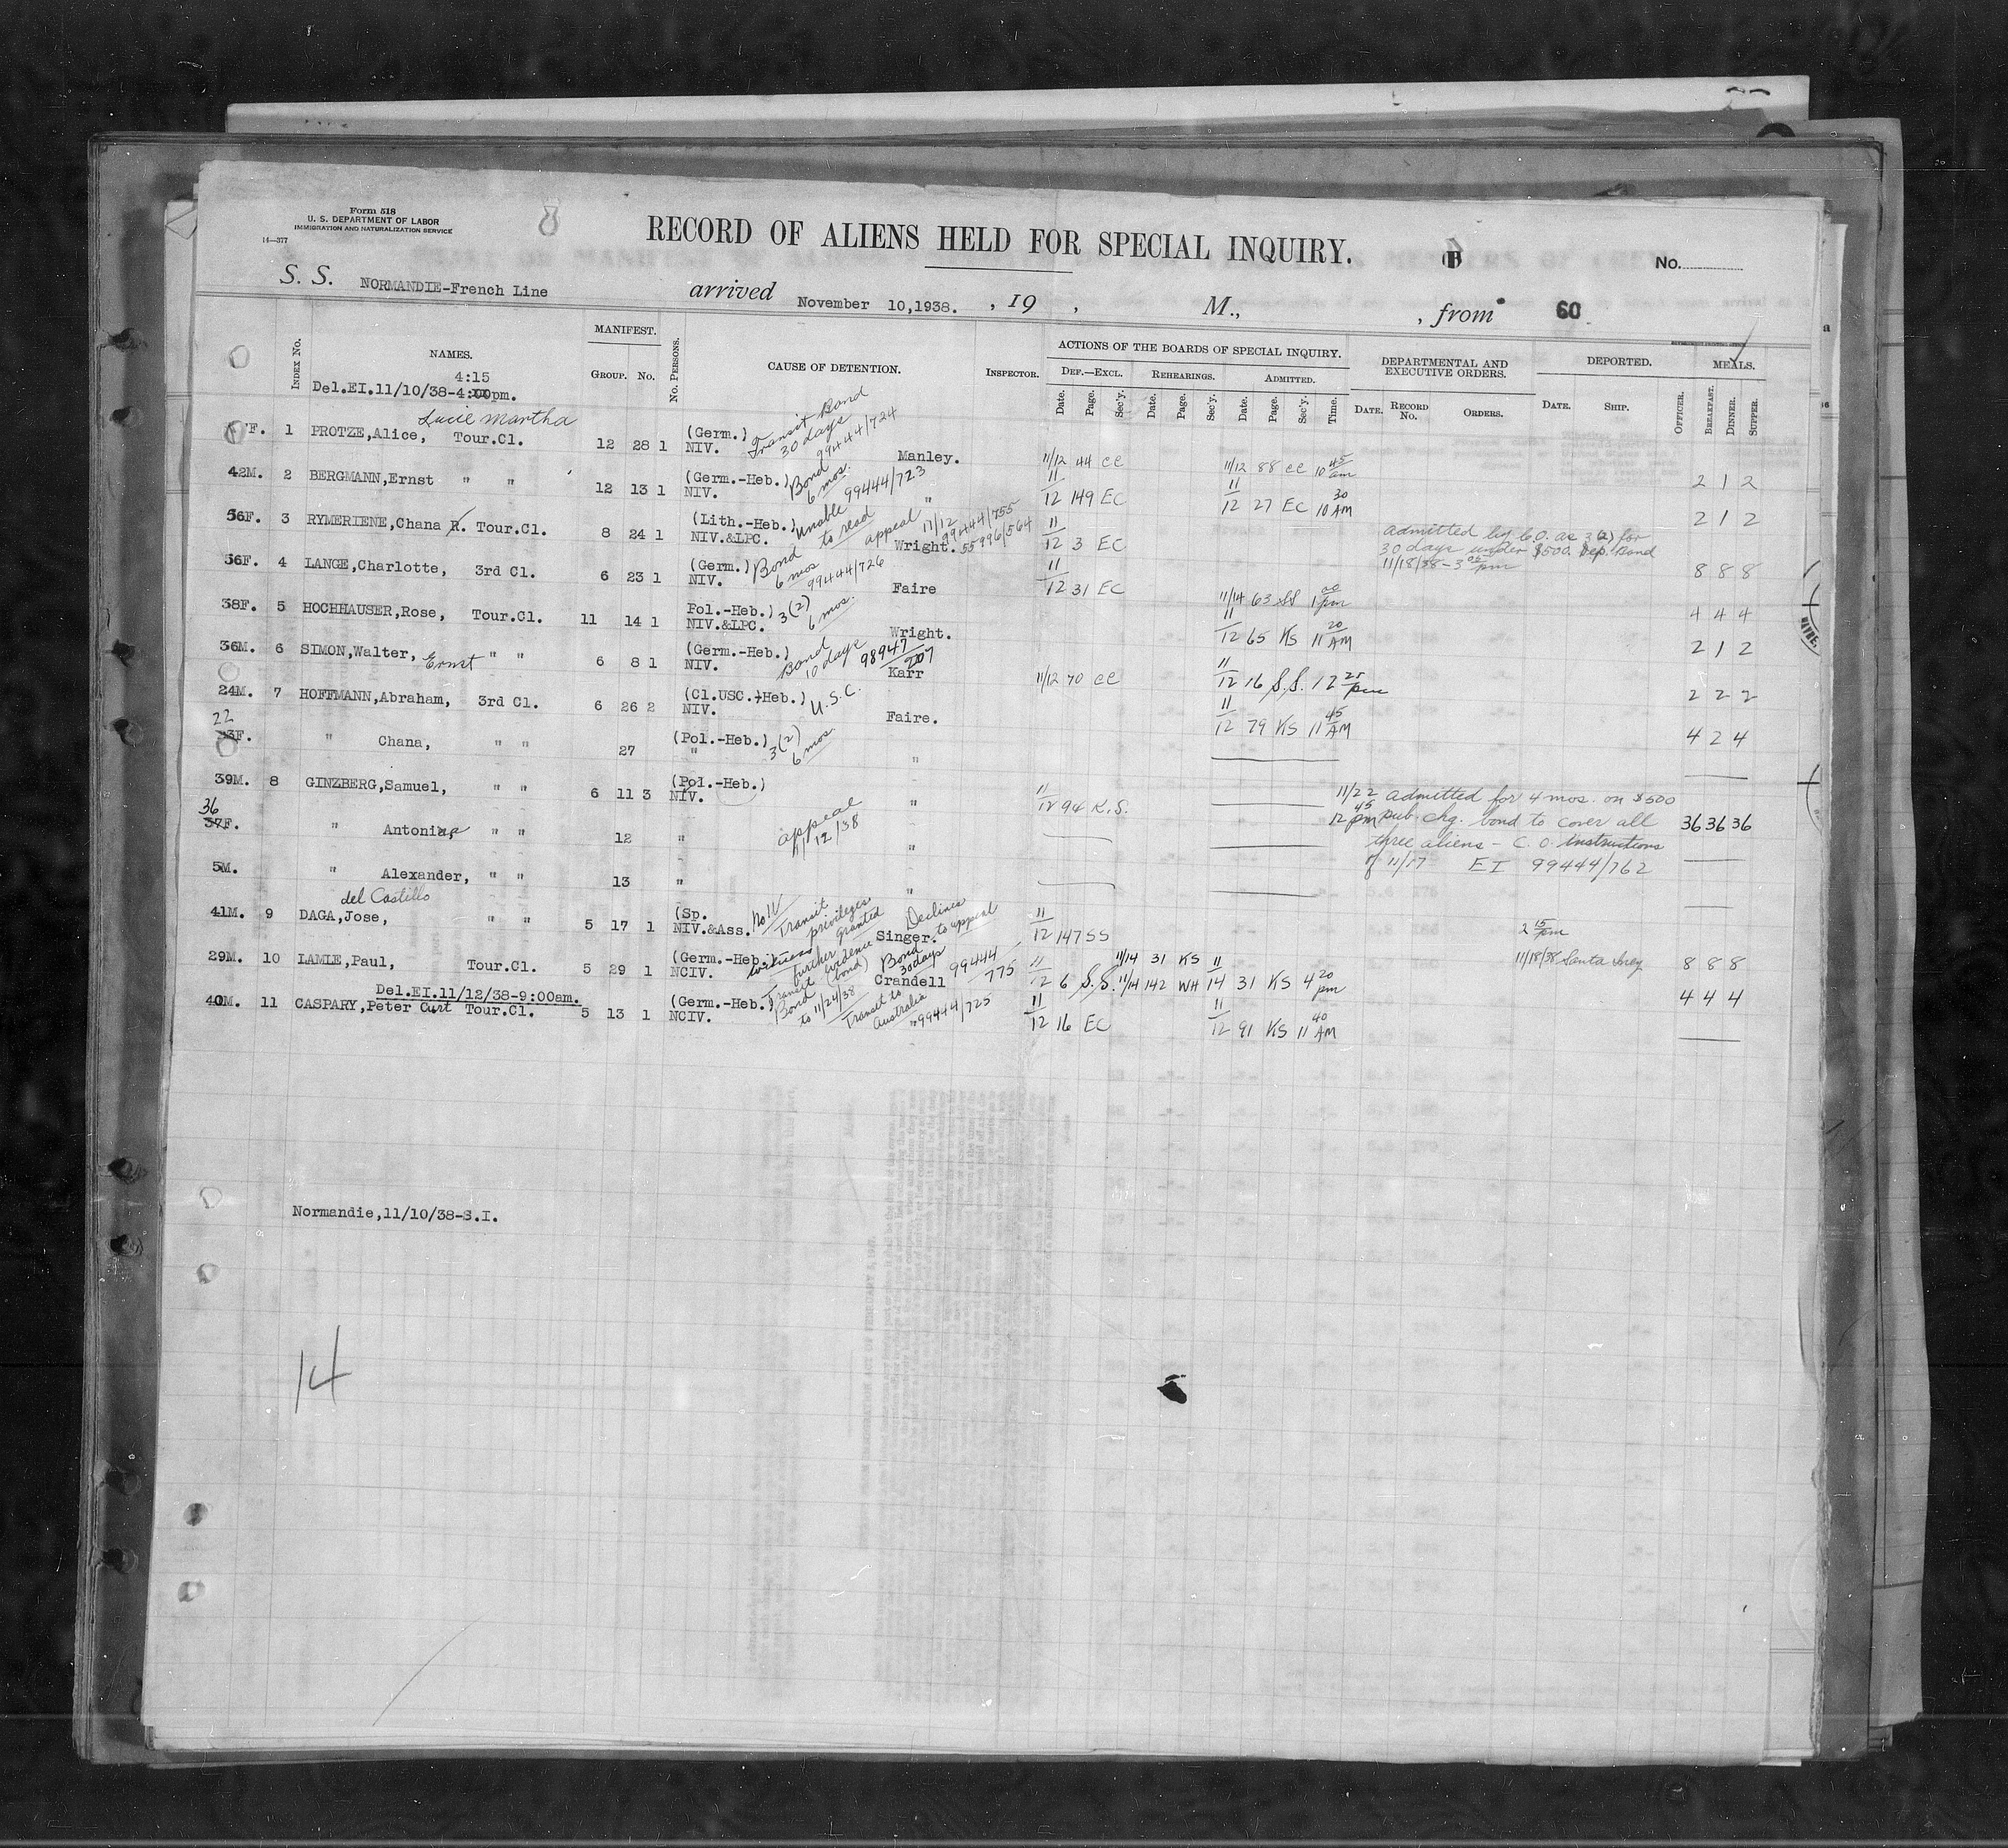 Form 518
U. S. DEPARTMENT OF LABOR
IMMIGRATION AND NATURALIZATION SERVICE
14—377
8
RECORD OF ALIENS HELD FOR SPECIAL INQUIRY.
No.
S. S. NORMANDIE-French Line arrived November 10,1938. , 19 , M., , from 60
INDEX NO. NAMES. MANIFEST. GROUP. NO. NO. PERSONS. CAUSE OF DETENTION. INSPECTOR. ACTIONS OF THE BOARDS OF SPECIAL INQUIRY. DEPARTMENTAL AND EXECUTIVE ORDERS. DEPORTED. MEALS.
DEF.—EXCL. REHEARINGS. ADMITTED.
Date. Page. Sec'y. Date. Page. Sec'y. Date. Page. Sec'y. Time. DATE. RECORD NO. ORDERS. DATE. SHIP. OFFICER. BREAKFAST. DINNER. SUPPER.
4:15
Del.EI.11/10/38-4:00pm.
Lucie Martha
F. 1 PROTZE,Alice, Tour.Cl. 12 28 1 (Germ.) NIV. Transit Bond 30 days 99444/724 Manley. 11/12 44 CC 11/12 88 CC 10 45 am 2 1 2
42M. 2 BERGMANN,Ernst " " 12 13 1 (Germ.-Heb.) NIV. Bond 6 mos. 99444/723 " 11/12 149 EC 11/12 27 EC 10 30 AM 2 1 2
56F. 3 RYMERIENE,Chana R. Tour.Cl. 8 24 1 (Lith.-Heb.) NIV.&LPC. Unable to read appeal 11/12 99444/755 55996/564 Wright. 11/12 3 EC
admitted by C.O. as 3(2) for
30 days under $500. Dep. Bond
11/18/38-3 05 pm 8 8 8
56F. 4 LANGE,Charlotte, 3rd Cl. 6 23 1 (Germ.) NIV. Bond 6 mos 99444/726 Faire 11/12 31 EC 11/14 63 SS 1 00 pm 4 4 4
38F. 5 HOCHHAUSER,Rose, Tour.Cl. 11 14 1 Pol.-Heb.) NIV.&LPC. 3(2) 6 mos. Wright. 11/12 65 KS 11 20 AM 2 1 2
36M. 6 SIMON,Walter, Ernst " " 6 8 1 (Germ.-Heb.) NIV. Bond 10 days 98947/207 Karr 11/12 70 CC 11/12 16 S.S. 12 25 pm 2 2 2
24M. 7 HOFFMANN,Abraham, 3rd Cl. 6 26 2 (Cl.USC.-Heb.) NIV. U.S.C. Faire. 11/12 79 KS 11 45 AM 4 2 4
22
F. " Chana, " " 27 (Pol.-Heb.) " 3(2) 6 mos. "
39M. 8 GINZBERG,Samuel, " " 6 11 3 (Pol.-Heb.) NIV. " 11/12 94 K.S.
11/22 admitted for 4 mos. on $500
12 45 pm pub. chg. bond to cover all 36 36 36
three aliens - C.O. Instructions
of 11/17 EI 99444/762
36
37F. " Antonina " " 12 " appeal 11/12/38 "
5M. " Alexander, " " 13 " "
del Castillo
41M. 9 DAGA,Jose, " " 5 17 1 (Sp. NIV.&Ass. No 11 Transit privileges granted Declines to appeal Singer. 11/12 147 SS 2 15 pm 11/18/38 Santa 8 8 8
29M. 10 LAMLE,Paul, Tour.Cl. 5 29 1 (Germ.-Heb.) NCIV. witness further evidence (bond) Bond 30 days 99444/775 Crandell 11/12 6 S.S. 11/14 31 KS 11/14 142 WH 11/14 31 KS 4 20 pm 4 4 4
Del.EI.11/12/38-9:00am.
40M. 11 CASPARY,Peter Curt Tour.Cl. 5 13 1 (Germ.-Heb.) NCIV. Transit Bond to 11/24/38 Transit to Australia 99444/725 " 11/12 16 EC 11/12 91 KS 11 40 AM
Normandie,11/10/38-S.I.
14